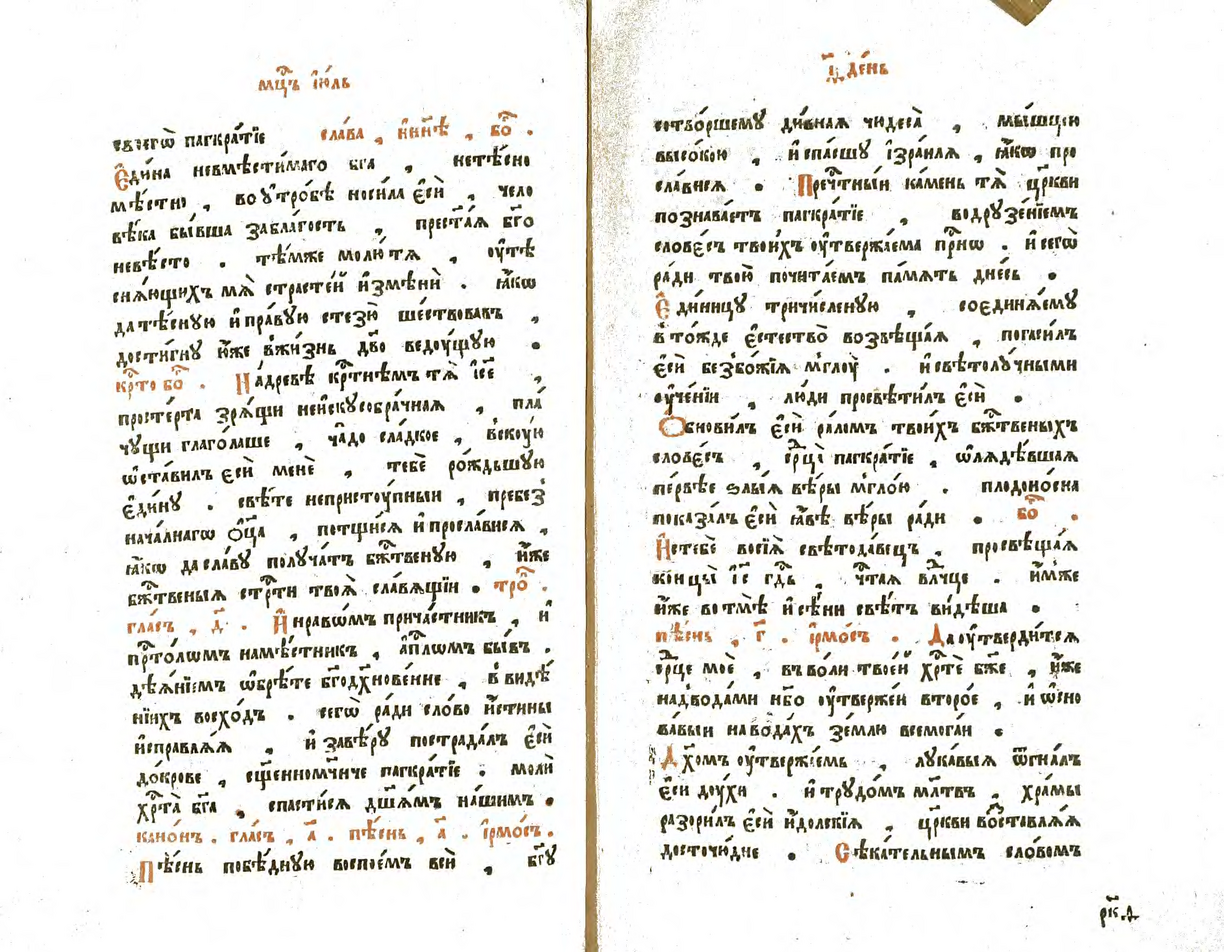 мц҃ъ і҆ю́ль
своегѡ̀ пагкра́тїе сла́ва , и҆ ны́нѣ , бо҃ .
Е҆ди́на невмѣсти́маго бг҃а , нетѣ́сно
мѣ́стно , во ᲂу҆тро́бѣ носи́ла є҆сѝ , чело
вѣ́ка бы́вша забл҃гость , прест҃ая бг҃о
невѣ́сто . тѣ́мже молю́ тѧ , ᲂу҆тѣ
снѧ́ющихъ мѧ̀ страсте́й и҆змѣнѝ . ꙗ҆́кѡ
да тѣ́сную и҆ пра́вую стезю̀ ше́ствовавъ ,
дости́гну и҆́же в̾жи́знь дв҃о веду́щую .
кр҃то бо҃ . На́древѣ кр҃тнѣмъ тѧ̀ і҆с҃е ,
просте́рта зрѧ́щи неискусобра́чная , пла́
чущи глаго́лаше , ча́до сла́дкое , вску́ю
ѡ҆ста́вилъ є҆сѝ менѐ , тебѐ ро́ждьшую
є҆ди́ну . свѣ́те непристу́пныи , пребез̾
нача́лнагѡ ѻ҆ц҃а̀ , потщи́сѧ и҆ просла́висѧ ,
ꙗ҆́кѡ да сла́ву полу́чатъ бж҃твеную , и҆́же
бж҃твеныѧ стр҃ти твоѧ̀ сла́вѧщїи . тро҃ .
гла́съ , д҃ . И҆ нра́вѡмъ прича́стникъ , и҆
пр҃то́лѡмъ намѣ́стникъ , а҆пл҃ѡмъ бы́въ .
дѣѧ́нїемъ ѡ҆брѣ́те бг҃одх҃нове́нне , в̾ видѣ́
нїихъ восхо́дъ . сегѡ̀ ра́ди сло́во и҆́стины
и҆справлѧ́ѧ , и҆ за вѣ́ру пострада́лъ є҆сѝ
до́крове , сщ҃енномч҃ниче пагкра́тїе . молѝ
хр҃та̀ бг҃а , спасти́сѧ дш҃а́мъ на́шимъ .
кано́нъ . гла́съ , а҃ . пѣ́снь , а҃ . і҆рмо́съ .
Пѣ́снь побѣ́дную воспое́мъ всѝ , бг҃у
ѳ҃ де́нь
сотво́ршему ди́вная чюдеса̀ , мы́шцею
высо́кою , и҆ спа́сшу і҆зра́илѧ , ꙗ҆́кѡ про
сла́висѧ . Преч҃тныи ка́мень тѧ̀ цр҃кви
познава́етъ пагкра́тїе , водруже́нїемъ
слове́съ твои́хъ ᲂу҆твержа́ема пр҃нѡ . и҆ сегѡ̀
ра́ди твою̀ почита́емъ па́мѧть дне́сь .
Е҆ди́ницу тричи́сленую , соединѧ́ему
в то́жде є҆стество̀ возвѣща́ѧ , погаси́лъ
є҆сѝ безбо́жїѧ мглу̀ . и҆ свѣтолу́чными
ᲂу҆че́нїи , лю́ди просвѣти́лъ є҆сѝ .
Ѻ҆бнови́лъ є҆сѝ ра́ломъ твои́хъ бж҃твеныхъ
слове́съ , ср҃цѐ пагкра́тїе , ѡ҆лѧдѣ́вшая
пе́рвѣе ѕлы́ѧ вѣ́ры мгло́ю . плодоно́сна
показа́лъ є҆сѝ ꙗ҆́вѣ вѣ́ры ра́ди . бо҃ .
И҆стебѐ восїѧ̀ свѣтода́вецъ , просвѣща́ѧ
концы̀ і҆с҃ гд҃ь , ч҃тая вл҃чце . и҆́мже
и҆́же во тмѣ̀ и҆ сѣ́ни свѣ́тъ ви́дѣша .
пѣ́снь , г҃ . і҆рмо́съ . Да ᲂу҆тверди́тсѧ
ср҃це моѐ , въ во́ли твое́й хр҃тѐ бж҃е , и҆́же
надвода́ми нб҃о ᲂу҆твержѐи второ́е , и҆ ѡ҆сно
ва́выи на вода́хъ зе́млю всемога́и .
Дх҃омъ ᲂу҆твержа́емь , лука́выѧ ѿгна́лъ
є҆си ду́хи . и҆ трудо́мъ мл҃твъ , хра́мы
разори́лъ є҆сѝ и҆́долскїѧ , цр҃кви во́ставлѧѧ
досточю́дне . Сѣка́тельнымъ сло́вомъ
рк҃д